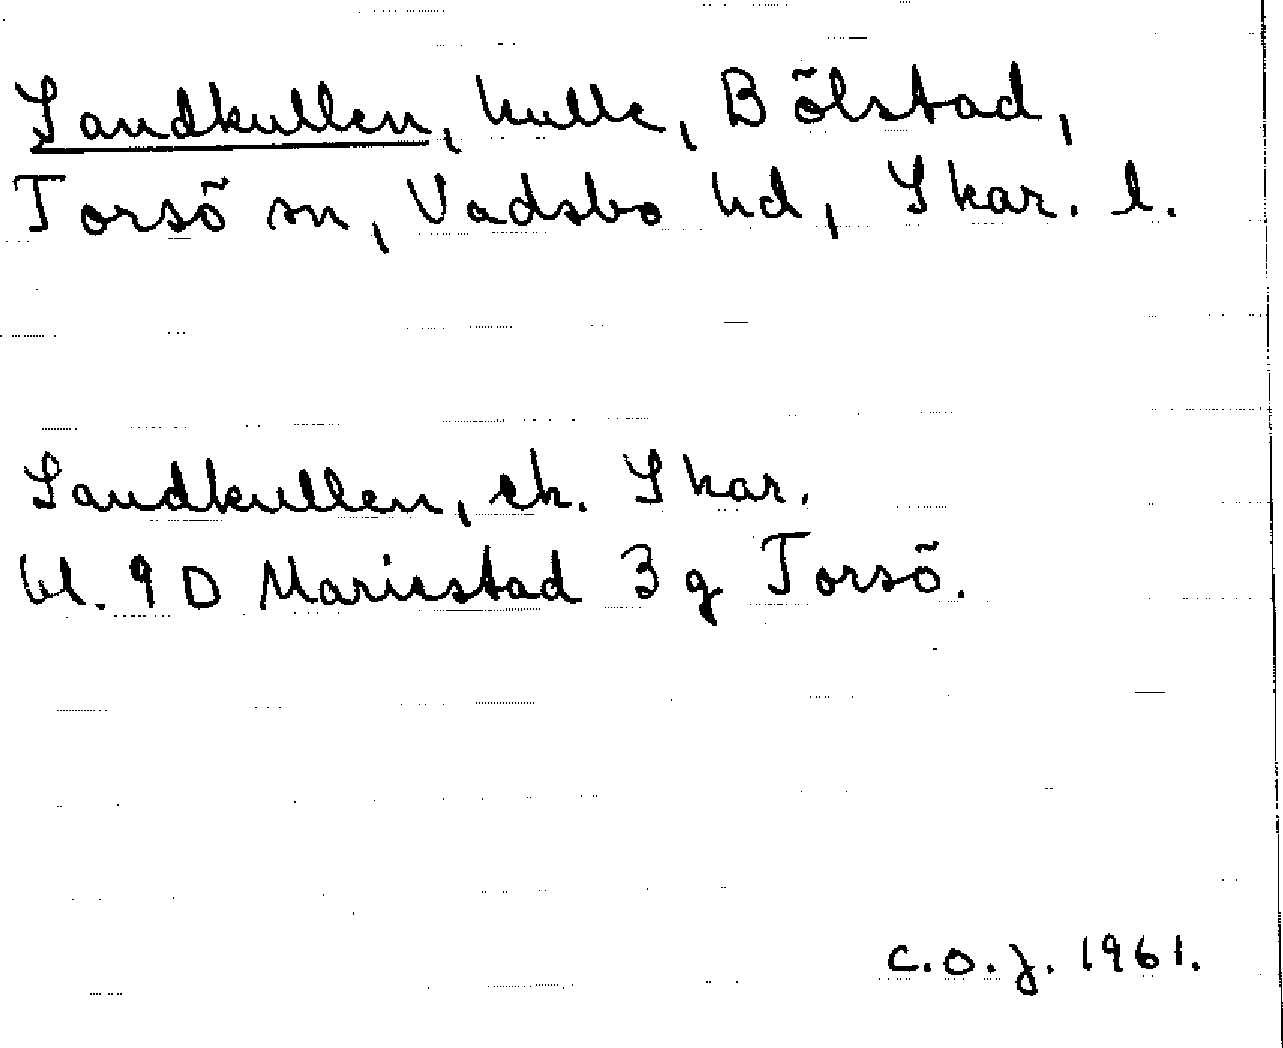 Sandkullen, kulle, Bölstad,
Torsö sn, Vadsbo hd, Skar. l.
Sandkullen, ek. Skar.
bl. 9 D Mariestad 3 g Torsö.
C.O.J. 1961.